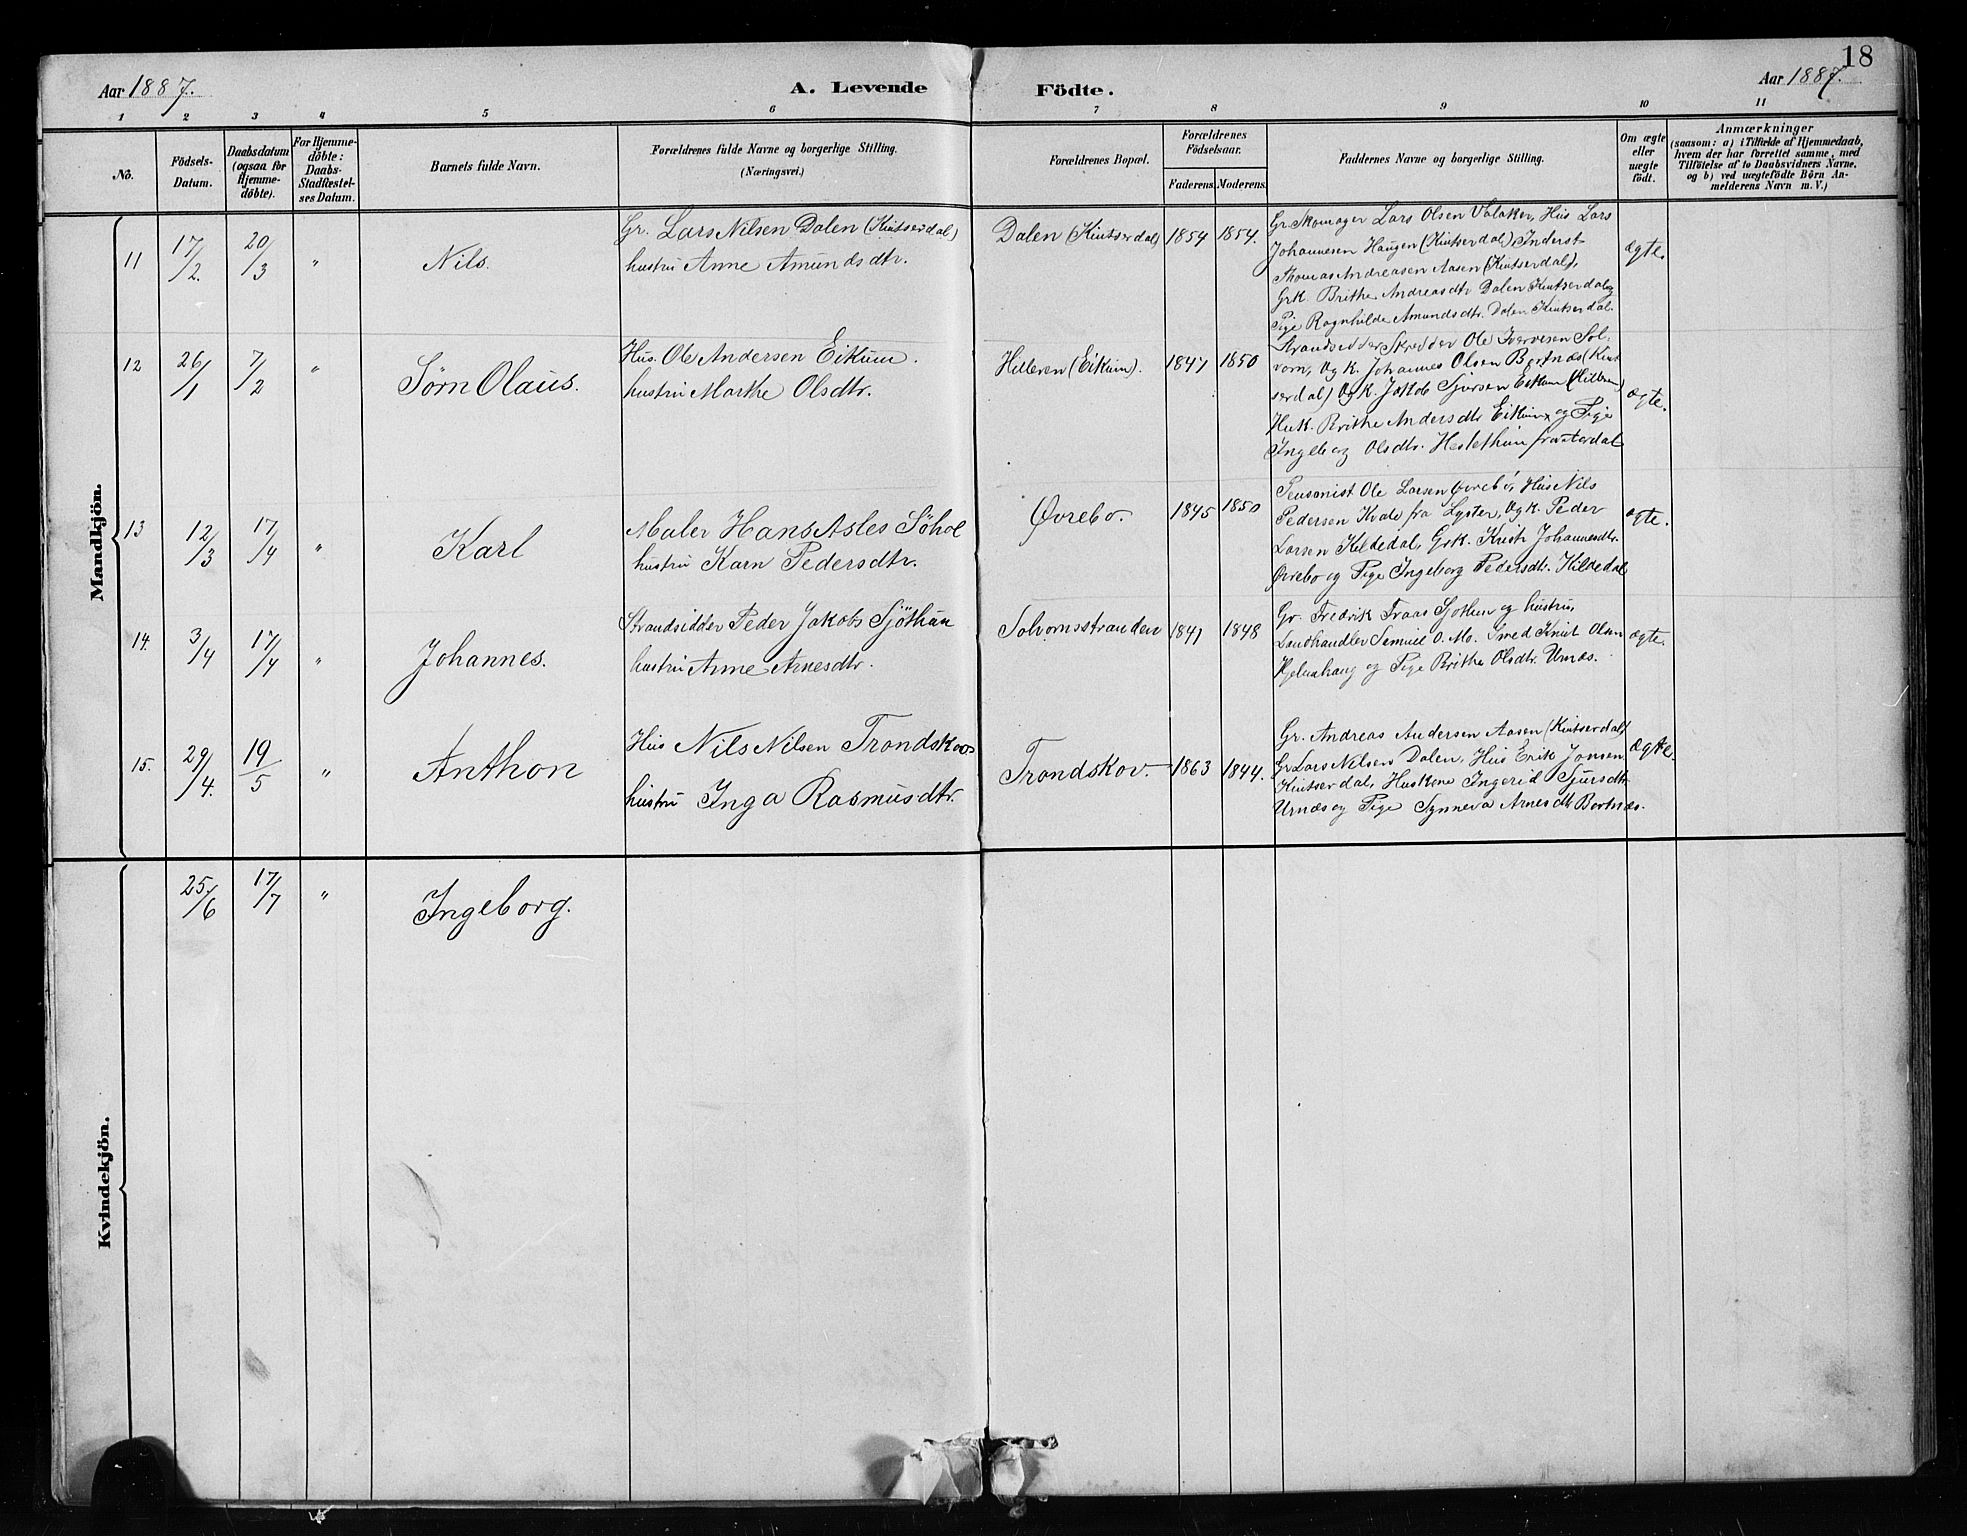 18
Aar 1887. A. Levende Födte. Aar 1887.
1 2 3 4 5 6 7 8 9 10 11
No.
Födsels-
Datum.
Daabsdatum
(ogsaa for
Hjemme-
döbte).
For Hjemme-
döbte:
Daabs-
Stadfæstel-
ses Datum.
Barnets fulde Navn.
Forældrenes fulde Navne og borgerlige Stilling.
(Næringsvei.)
Forældrenes Bopæl.
Forældrenes
Födselsaar.
Faderens. Moderens.
Faddernes Navne og borgerlige Stilling.
Om ægte
eller
uægte
födt.
Anmærkninger
(saasom: a) i Tilfælde af Hjemmedaab,
hvem der har forrettet samme, med
Tilföielse af to Daabsvidners Navne,
og b) ved uægtefödte Börn An-
melderens Navn m. V.)
Mandkjön.
11 17/2. 20/3 " Nils.
Gr. Lars Nilsen Dalen (Kintserdal)
hustru Anne Amundsdtr.
Dalen (Kintserdal) 1854 1854.
Gr. Skomager Lars Olsen Valaker, Hus Lars
Johannesen Haugen (Kintserdal), Inderst
Thomas Andreasen Aasen (Kintserdal),
Grk. Brithe Andreasdtr Dalen Kintserdal og
Pige Ragnhilde Amundsdtr. Dalen Kintserdal.
ægte.
12 26/1 7/2 " Sørn Olaus.
Hus. Ole Andersen Eikum.
hustru Marthe Olsdtr.
Hilleren (Eikum). 1847 1850
Strandsidder Skredder Ole Iversen Sol-
vorn, Ug k. Johannes Olsen Bortnæs (Kint
serdal) Ug k. Jakob Sjursen Eikum (Hilleren)
Husk. Brithe Andersdtr Eikum og Pige
Ingeborg Olsdtr. Hestethun fra Aardal
ægte.
13 12/3 17/4 " Karl
Maler Hans Asles Söhol
hustru Karn Pedersdtr.
Øvrebo. 1845 1850
Pensonist Ole Larsen Øvrebö, Hus Nils
Pedersen Kvale fra Lyster, Ug k. Peder
Larsen Kildedal, Grk. Kristi Johannesdtr.
Øvrebo og Pige Ingeborg Pedersdtr. Hildedal
ægte.
14. 3/4 17/4 " Johannes.
Strandsidder Peder Jakobs Sjöthun
hustru Anne Arnesdtr.
Solvornsstranden 1841 1848
Gr. Fredrik Traas Sjothun og hustru,
Landhandler Semuel O. Mo. Smed Knut Olsen
og Pige Brithe Olsdtr. Urnæs.
ægte.
15. 29/4. 19/5 " Anthon
Hus Nils Nilsen Trondskov
hustru Inga Rasmusdtr.
Trondskov. 1863 1844.
Gr. Andreas Andersen Aasen (Kintserdal)
Gr Lars Nilsen Dalen, Hus Erik Jonsen
Kintserdal, Huskone Ingerid Sjursdtr
Urnæs og Pige Synneva Arnesdtr Bortnæs.
ægte.
Kvindekjön.
25/6 17/7 " Ingeborg.